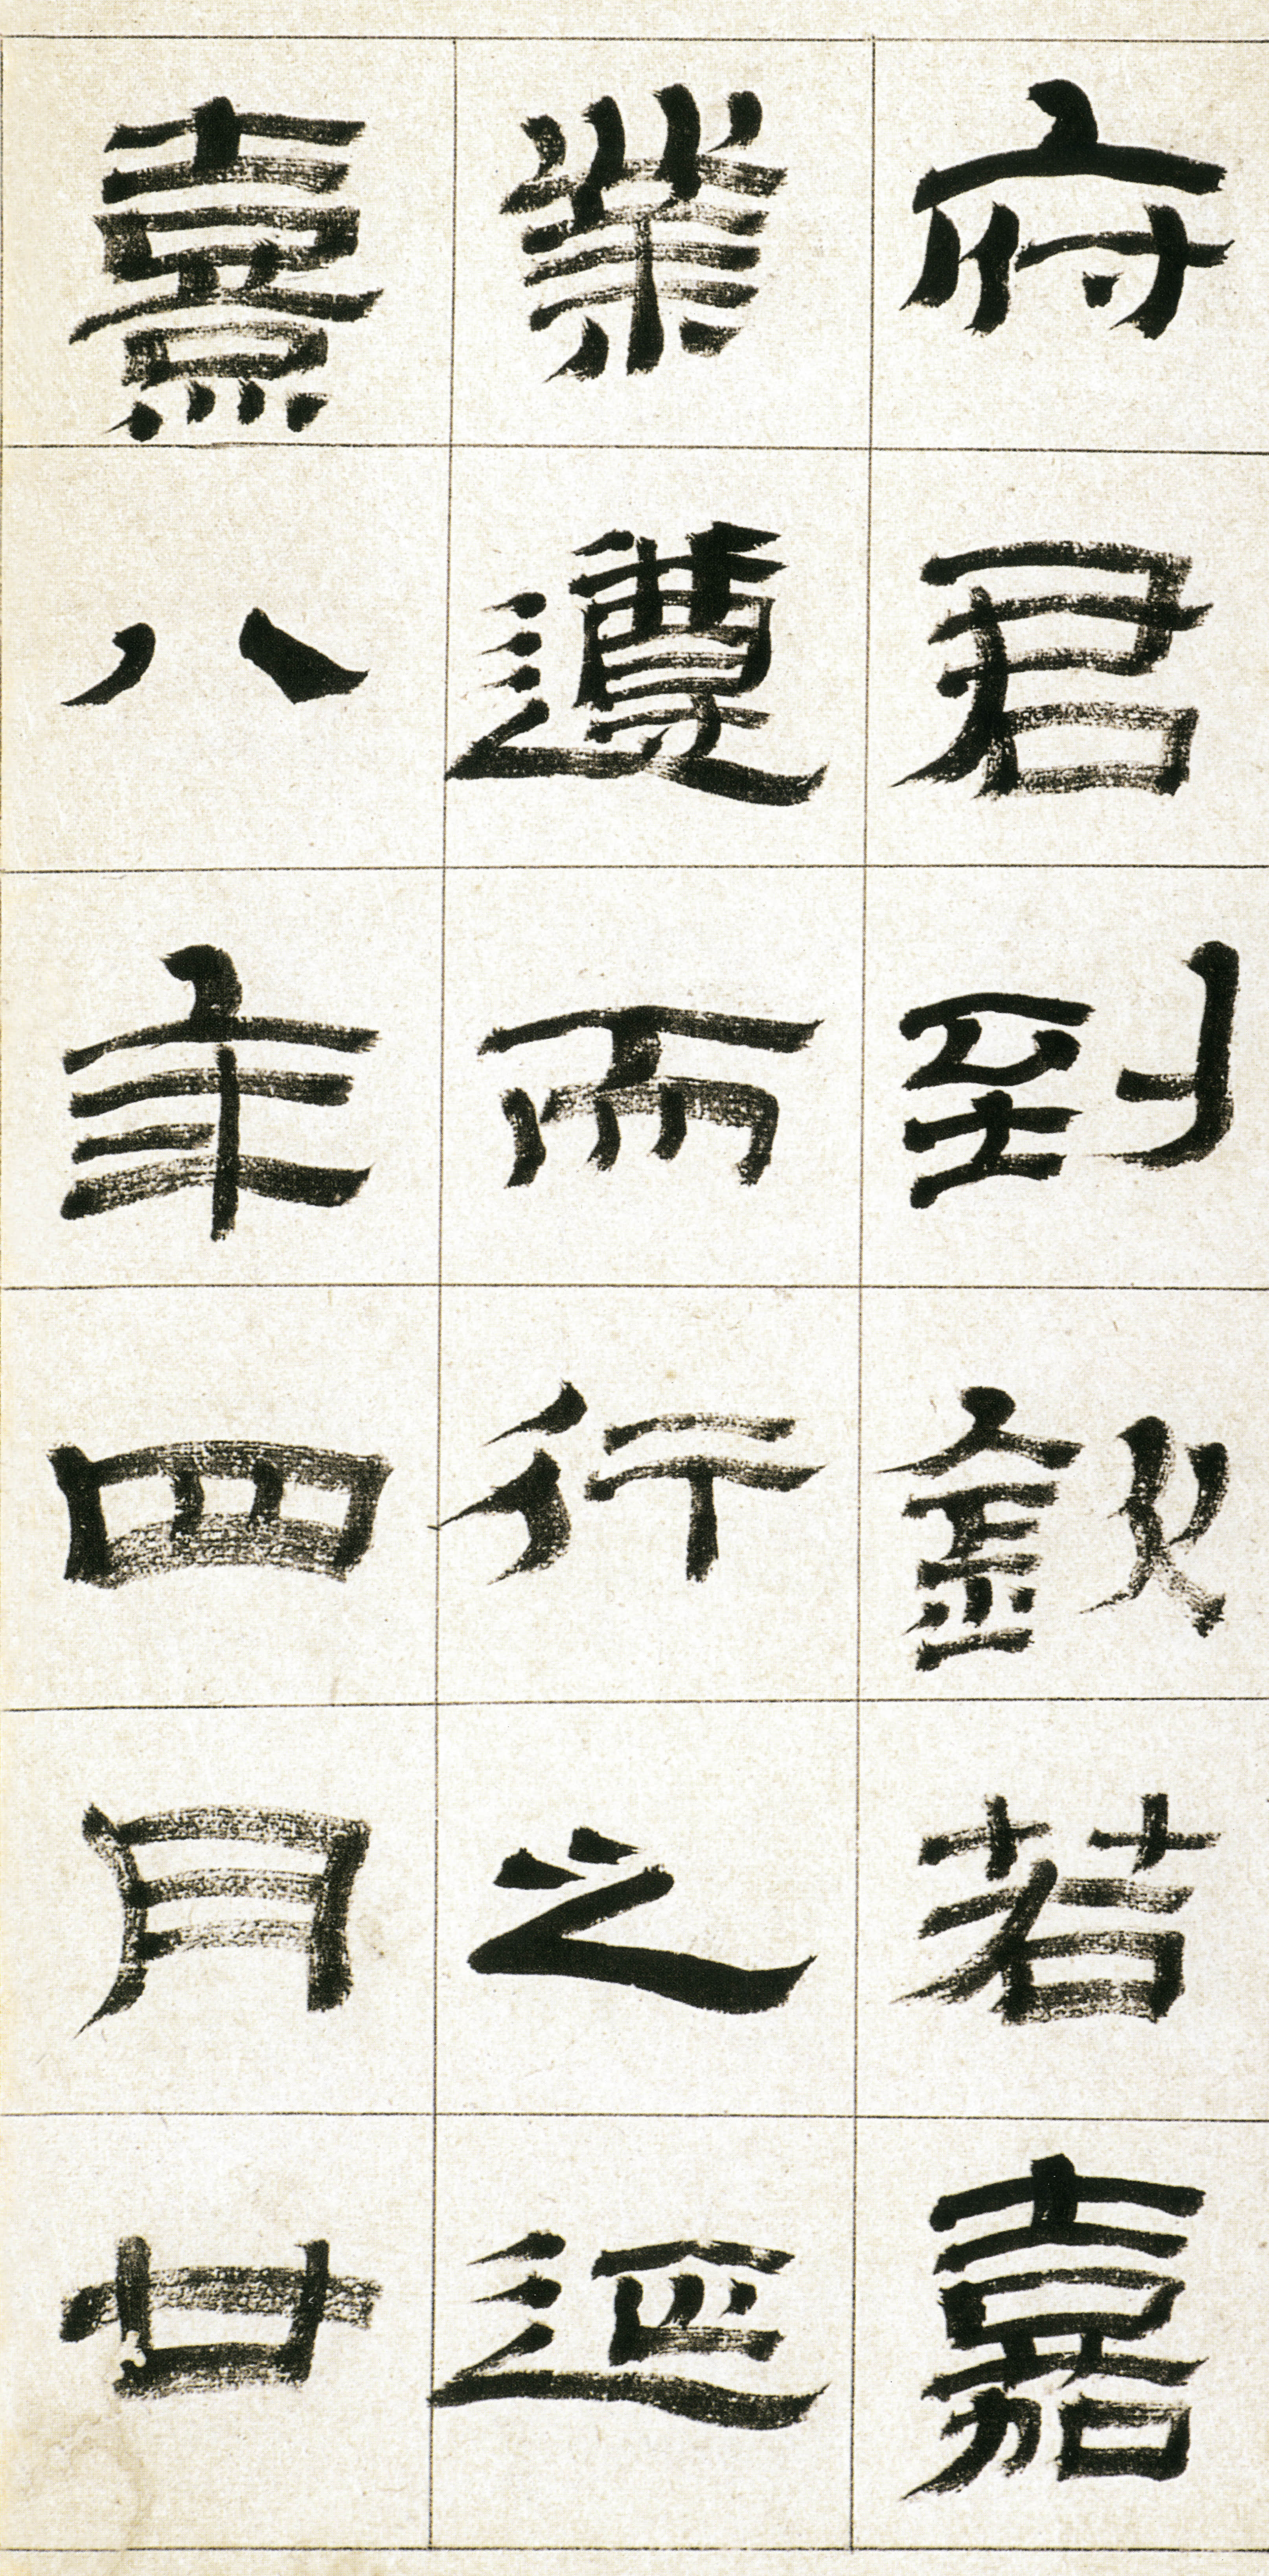 府君到欽若嘉
業遵而行之延
熹八年四月廿